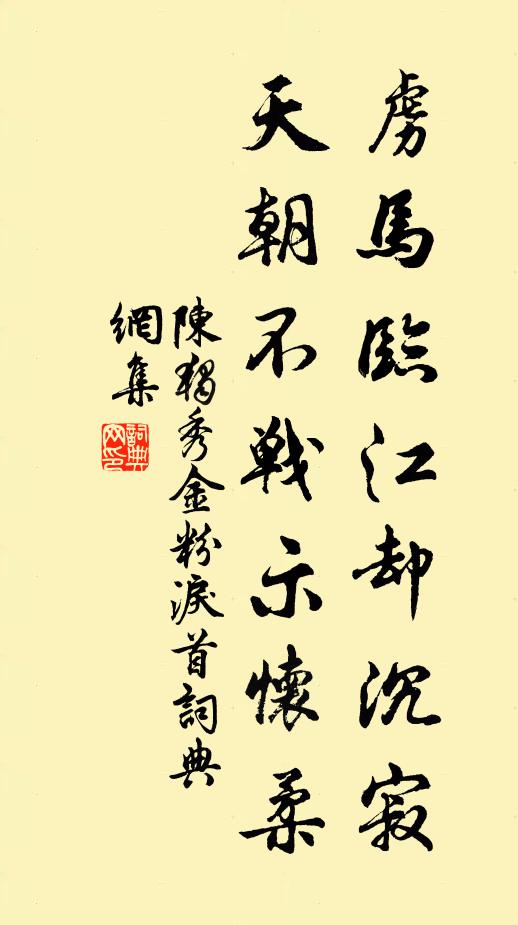 虜馬臨江却沉寂
天朝不戰示懷柔
陳獨秀金粉淚首詞典
網集
詞典
网印